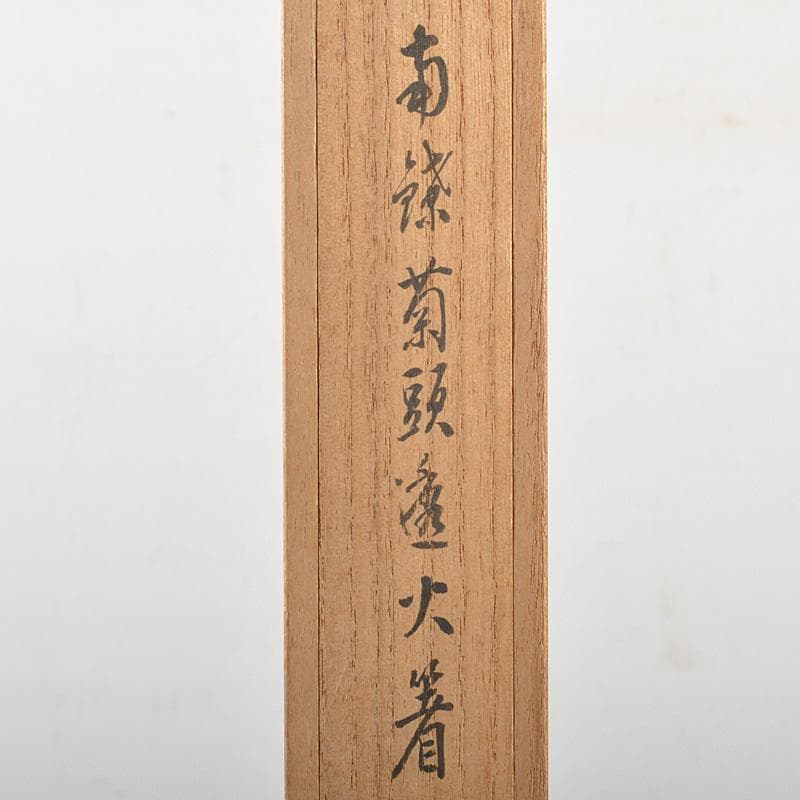 南鐐菊頭透火箸